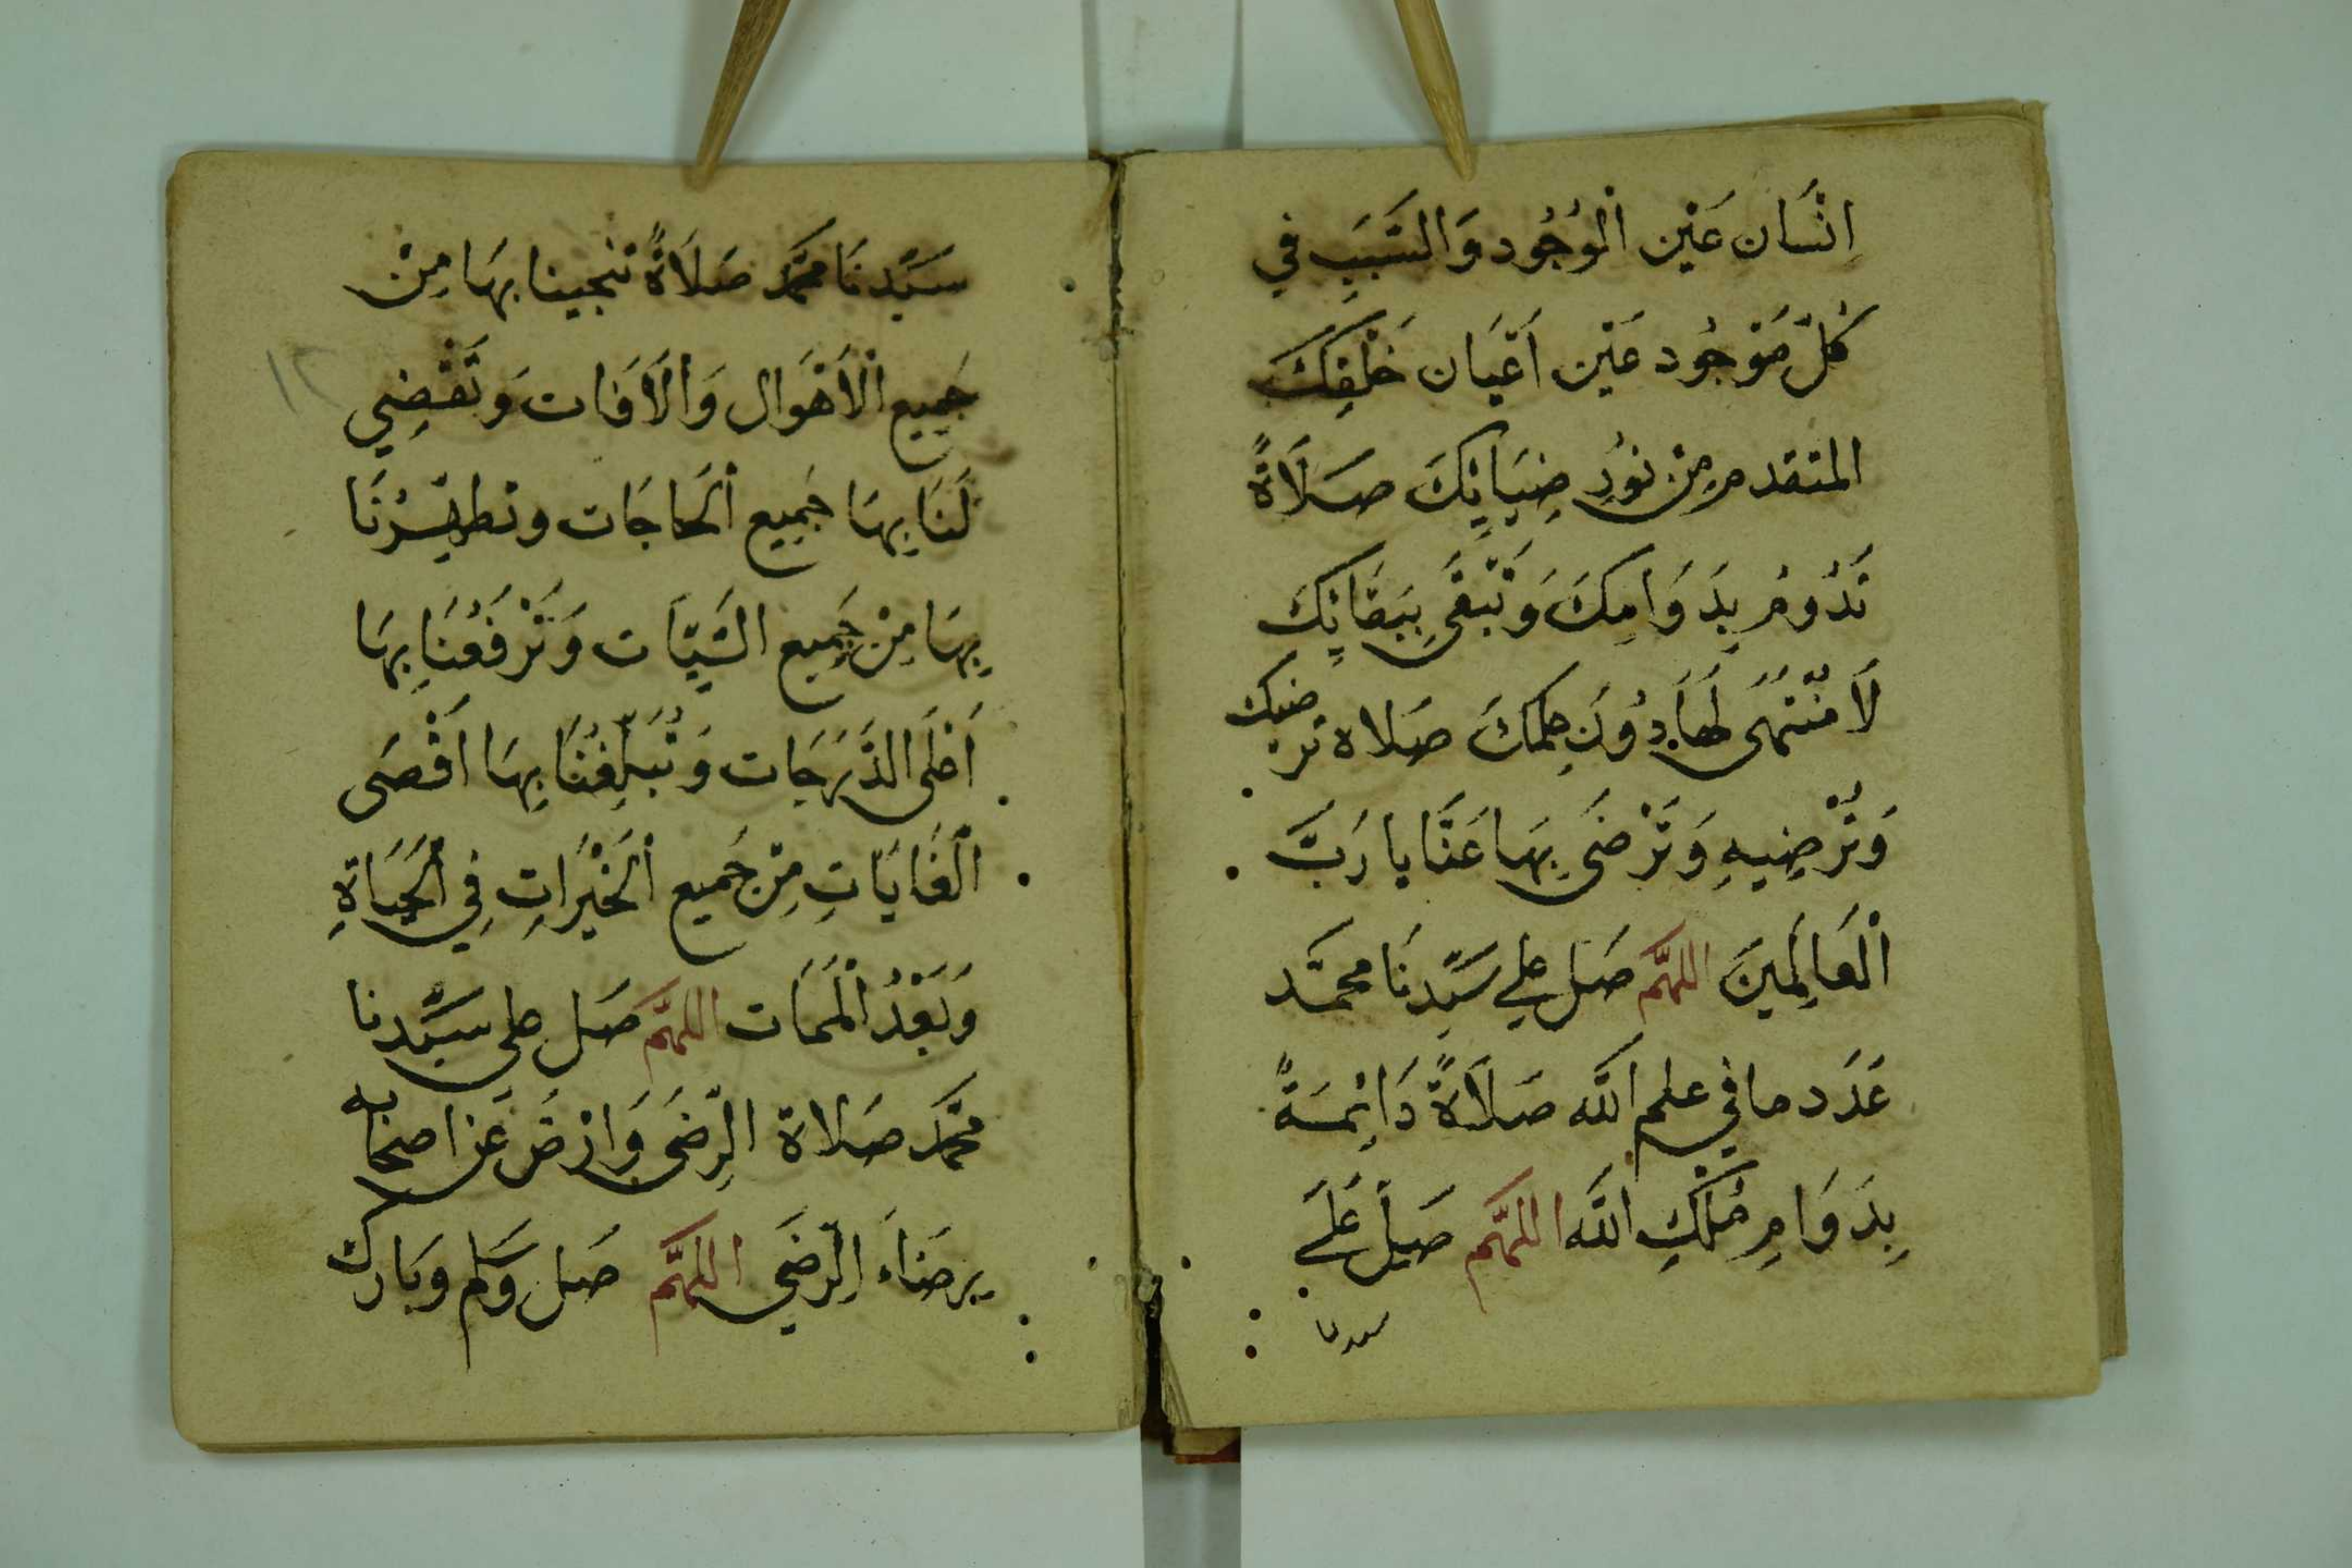 اِنْسَان عَيْن الْوُجُود وَالسَّبَبِ في
كُلّ مَوْجُود عَيْن اَعْيَان خَلْقِكَ
المتقدم مِنْ نوُرِ ضِيَائِكَ صَلَاةً
تَدُومُ بِدَوَامِكَ وَتَبْقَى بِبَقَائِكَ
لَا مُنْتَهَى لَهَا دُونَ عِلمكَ صَلاة ترضيك
وَتُرْضِيهِ وَتَرْضَى بِهَا عَنَّا يا رَبَّ
الْعَالَمِينَ اللهمَّ صَل علي سَيِّدِنَا محمَّد
عَدَد ما في علم اللَّه صَلَاةً دَائِمَةً
بِدَوَامِ مُلْكِ اللَّه اللهمَّ صَلِّ عَلَى
سيدنا
سَيِّدِنَا محَمَّد صَلَاةً تنجينا بهَا مِنْ
جَمِيع الْاَهْوَال وَالْاَفَات وَتَقْضِي
لَنَا بِهَا جَمِيع الْحَاجَات وتطهِّرُنَا
بِهَا مِنْ جَمِيع السَّيِّاَت وَتَرْفَعُنَا بِهَا
اَعْلَى الدَّرَجَات وَتُبَلِّغُنَا بِهَا اَقْصَى
الْغَايَاتِ مِنْ جَمِيع الْخَيْرَاتِ فِي الْحَيَاةِ
وَبَعْدُ الْمَمَات اللهمَّ صَل على سَيِّدنا
محمَّد صَلاة الرِّضَى وَارْضَ عَن اصحَابه
برضَاءَ الرِّضَى اللهمَّ صَل وَسَلم وَبَارك
١٢